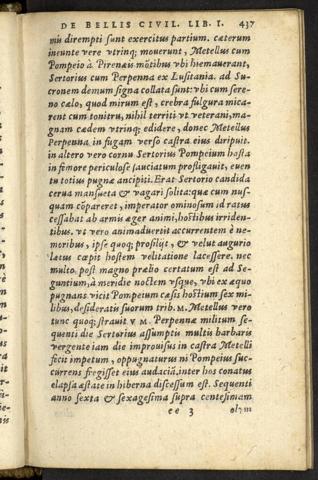 DE BELLIS CIVIL. LIB. I. 437
mis dirempti sunt exercitus partium. cæterum
ineunte vere vtrinq; mouerunt, Metellus cum
Pompeio à Pirenæis mõtibus vbi hiemauerant,
Sertorius cum Perpenna ex Lusitania. ad Su-
cronem demum signa collata sunt: vbi cum sere-
no cælo, quod mirum est, crebra fulgura mica-
rent cum tonitru, nihil territi vt veterani, ma-
gnam cædem vtrinq; edidere, donec Metellus
Perpenna in fugam verso castra eius diripuit.
in altero vero cornu Sertorius Pompeium hasta
in femore periculose sauciatum profligauit. euen
tu totius pugnæ ancipiti. Erat Sertorio candida
cerua mansueta & vagari solita: quæ cum nus-
quam cõpareret, imperator ominosum id ratus
cessabat ab armis æger animi, hostibus irriden-
tibus. vt vero animaduertit accurrentem è ne-
moribus, ipse quoq; prosilijt, & velut augurio
lætus cœpit hostem velitatione lacessere. nec
multo post magno prælio certatum est ad Se-
guntium, à meridie noctem vsque, vbi ex æquo
pugnans vicit Pompeium cæsis hostium sex mi-
libus, desideratis suorum trib. M. Metellus vero
tunc quoq; strauit V M. Perpennæ militum se-
quenti die Sertorius assumptis multis barbaris
vergente iam die improuisus in castra Metelli
fecit impetum, oppugnaturus ni Pompeius suc-
currens fregisset eius audaciã. inter hos conatus
elapsa æstate in hiberna discessum est. Sequenti
anno sexta & sexagesima supra centesimam
ee 3 olym